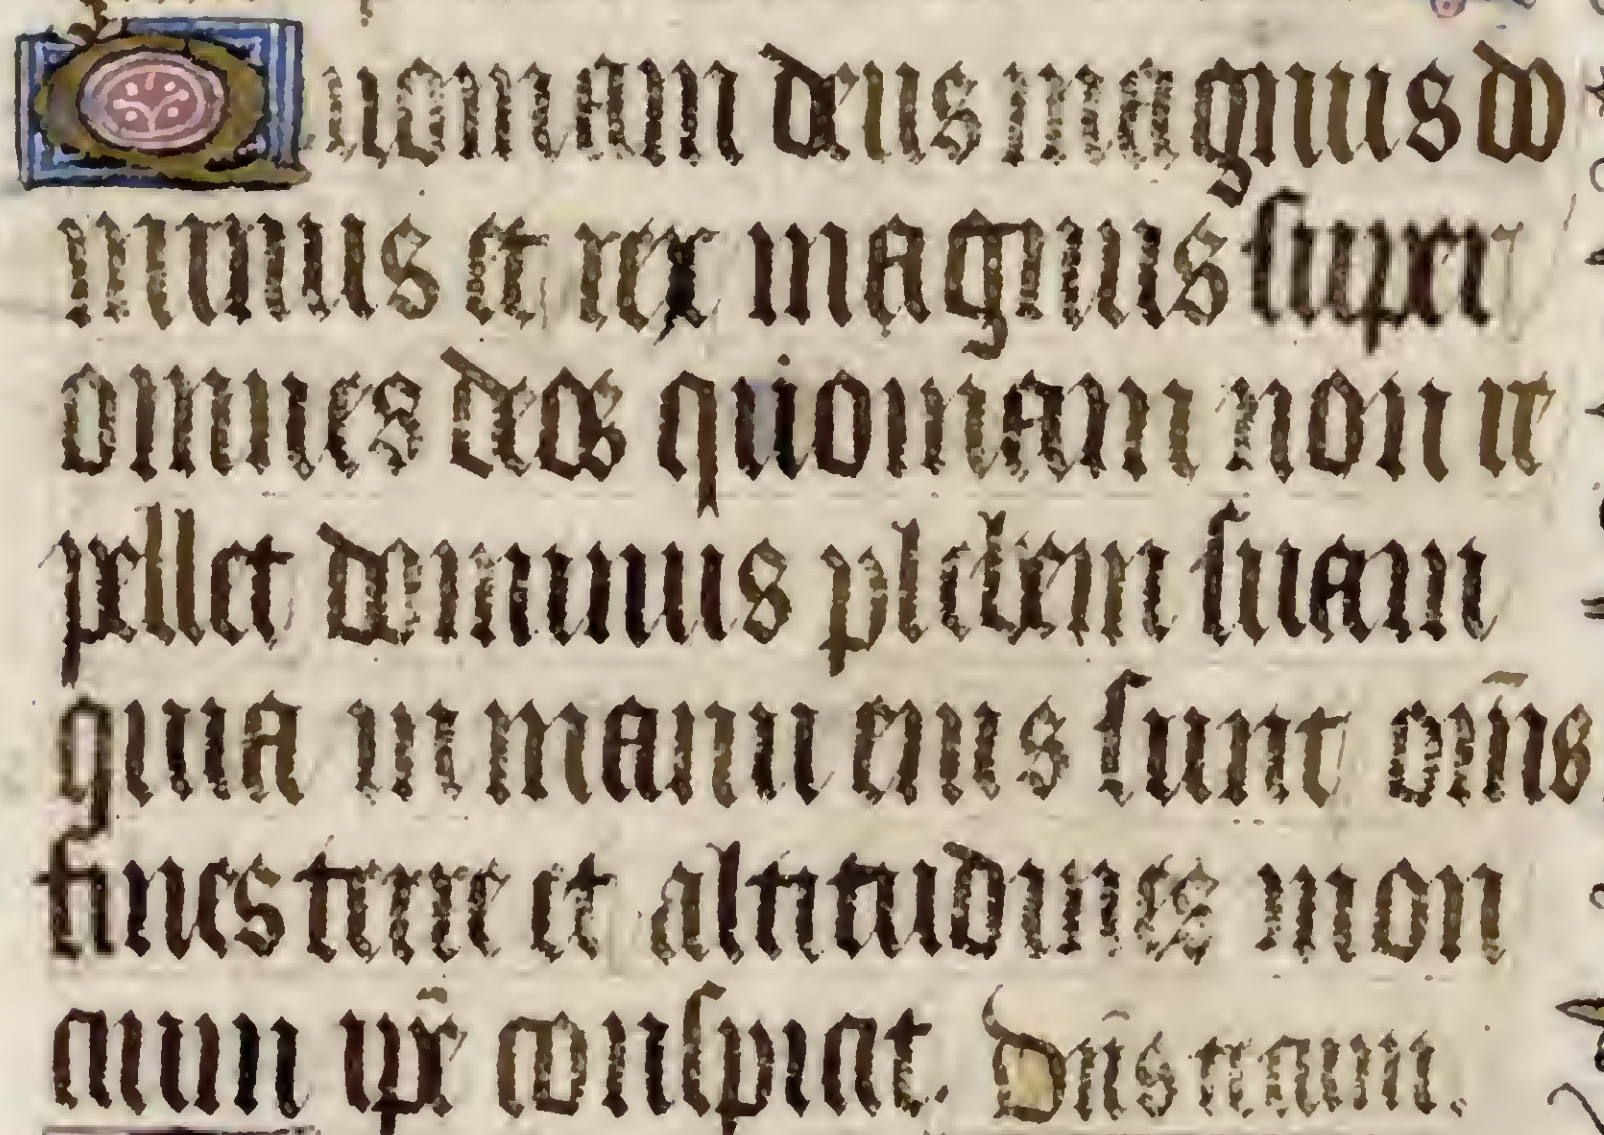 Quoniam deus magnus do
minus et rex magnus super
omnes deos quoniam non re
pellet dominus plebem suam
quia in manu eius sunt om̄s
fines terre et altitudines mon
cium ip̄e conspicit. Dn̄s tecum.